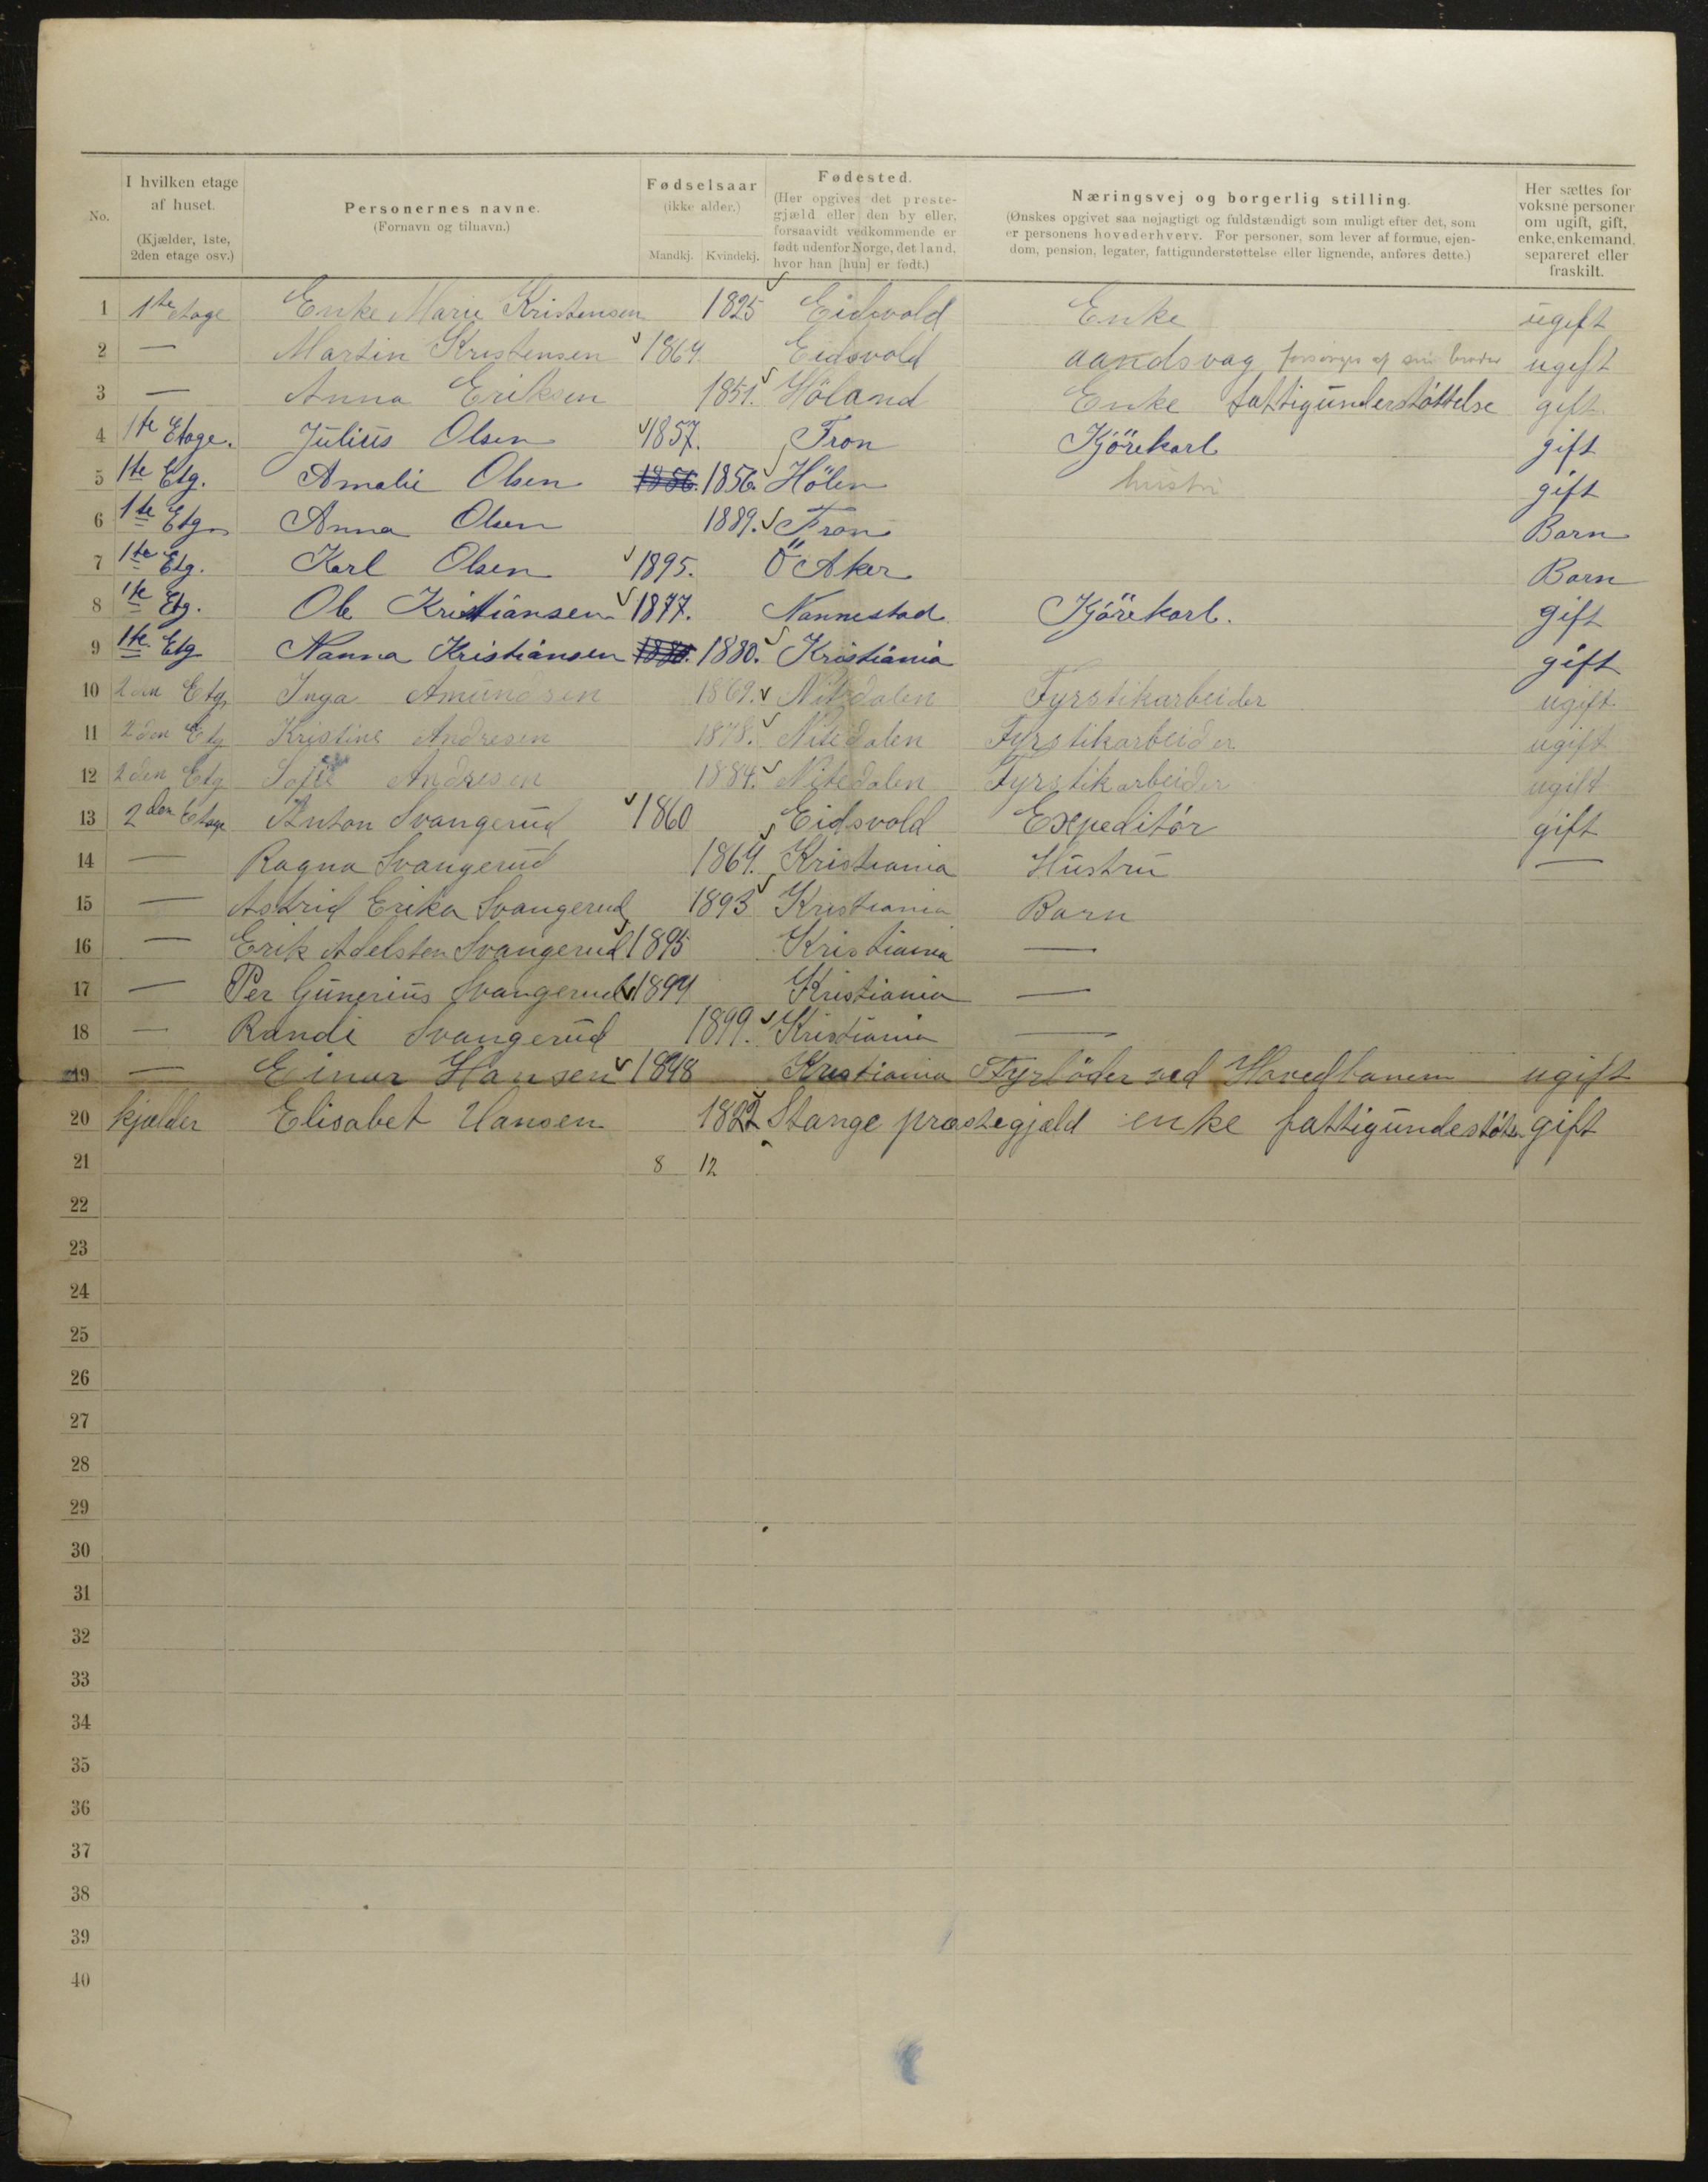 No.
I hvilken etage af huset. (Kjælder, 1ste, 2den etage osv.)
Personernes navne. (Fornavn og tilnavn.)
Fødselsaar (ikke alder.)
Mandkj. Kvindekj.
Fødested. (Her opgives det prestegjæld eller den by eller, forsaavidt vedkommende er født udenfor Norge, det land, hvor han [hun] er født.)
Næringsvej og borgerlig stilling. (Ønskes opgivet saa nøjagtigt og fuldstændigt som muligt efter det, som er personens hovederhverv. For personer, som lever af formue, ejendom, pension, legater, fattigunderstøttelse eller lignende, anføres dette.)
Her sættes for voksne personer om ugift, gift, enke, enkemand, separeret eller fraskilt.
1 1ste etage Enke Marie Kristensen 1825 Eidsvold Enke ugift
2 — Martin Kristensen 1864. Eidsvold aandsvag forsørges af sin broder ugift
3 — Anna Eriksen 1851. Höland Enke fattigunderstøttelse gift
4 1te Etage. Julius Olsen 1857. Fron Kjörekarl gift
5 1te Etg. Amalie Olsen 1856. 1856. Hölen hustru gift
6 1te Etg. Anna Olsen 1889. Fron Barn
7 1te Etg. Karl Olsen 1895. Ö Aker Barn
8 1te Etg. Ole Kristiansen 1877. Nannestad Kjörekarl. gift
9 1te Etg Nanna Kristiansen 1880. 1880. Kristiania gift
10 2den Etg. Inga Amundsen 1869. Nitedalen Fyrstikarbeider ugift
11 2den Etg Kristine Andresen 1878. Nitedalen Fyrstikarbeider ugift
12 2den Etg Sofie Andresen 1884. Nitedalen Fyrstikarbeider ugift
13 2den Etage Anton Svangerud 1860 Eidsvold Expeditör gift
14 — Ragna Svangerud 1864. Kristiania Hustru —
15 — Astrid Erika Svangerud 1893 Kristiania Barn
16 — Erik Adelsten Svangerud 1895 Kristiania —
17 — Per Gunerius Svangerud 1897 Kristiania —
18 — Randi Svangerud 1899. Kristiania —
19 — Einar Hansen 1878 Kristiania Fyrböder ved Hovedbanen ugift
20 kjælder Elisabet Hansen 1822 Stange præstegjæld enke fattigundestöten gift
21 8 12
22
23
24
25
26
27
28
29
30
31
32
33
34
35
36
37
38
39
40